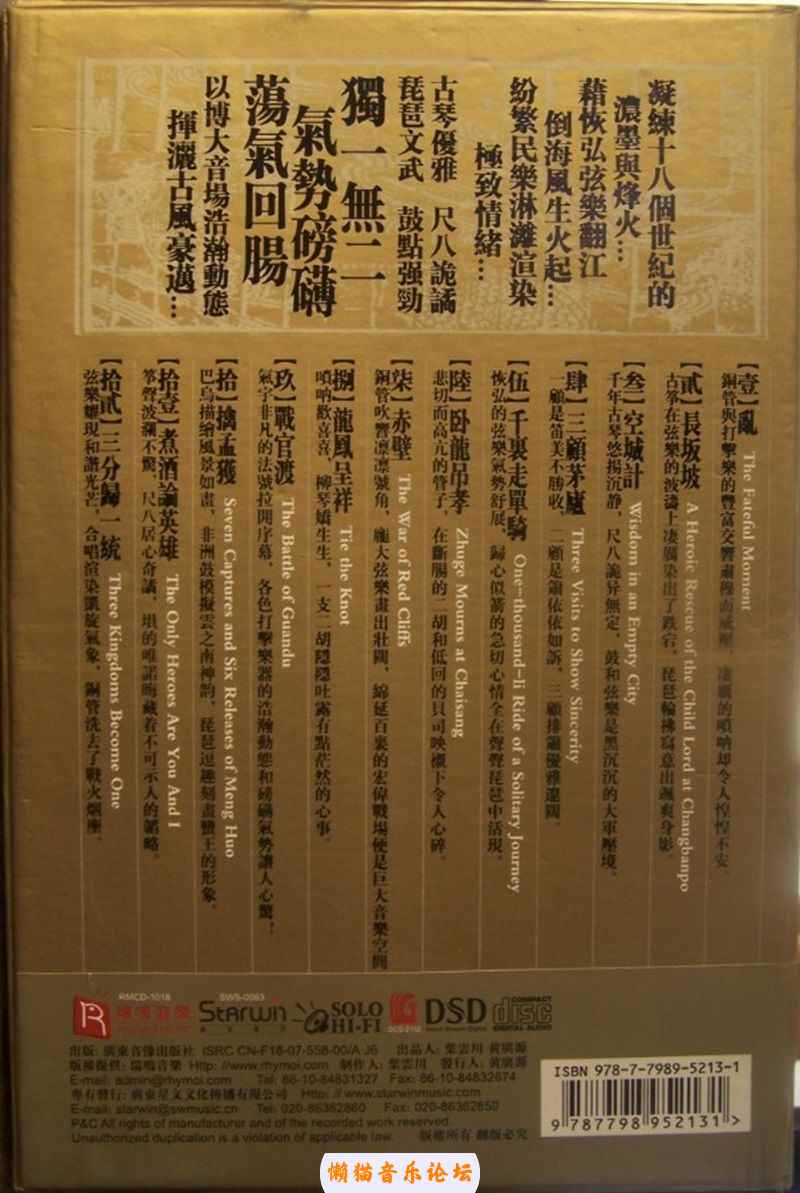 凝練十八個世紀的
濃墨與烽火…
藉恢弘弦樂翻江
倒海風生火起…
紛繁民樂淋灕渲染
極致情緒…
古琴優雅 尺八詭譎
琵琶文武 鼓點强勁
獨一無二
氣勢磅礴
蕩氣回腸
以博大音場浩瀚動態
揮灑古風豪邁…
【壹】亂 The Fateful Moment
銅管與打擊樂的豐富交響肅穆而威壓，凄厲的嗩吶却令人惶惶不安
【貳】長坂坡 A Heroic Rescue of the Child Lord at Changbanpo
古箏在弦樂的波濤上凄厲染出了跌宕，琵琶輪拂寫意出颯爽身影。
【叁】空城計 Wisdom in an Empty City
千年古琴悠揚沉静，尺八詭异無定，鼓和弦樂是黑沉沉的大軍壓境。
【肆】三顧茅廬 Three Visits to Show Sincerity
一顧是笛美不勝收，二顧是簫依依如訴，三顧排簫優雅遼闊。
【伍】千裏走單騎 One-thousand-li Ride of a Solitary Journey
恢弘的弦樂氣勢舒展，歸心似箭的急切心情全在聲聲琵琶中活現。
【陸】卧龍吊孝 Zhuge Mourns at Chaisang
悲切而高亢的管子，在斷腸的二胡和低回的貝司映襯下令人心碎。
【柒】赤壁 The War of Red Cliffs
銅管吹響凛凛號角，龐大弦樂畫出壯闊，綿延百裏的宏偉戰場便是巨大音樂空間
【捌】龍鳳呈祥 Tie the Knot
嗩吶歡喜喜，柳琴嬌生生，一支二胡隱隱吐露有點茫然的心事。
【玖】戰官渡 The Battle of Guandu
氣宇非凡的法號拉開序幕，各色打擊樂器的浩瀚動態和磅礴氣勢讓人心驚！
【拾】擒孟獲 Seven Captures and Six Releases of Meng Huo
巴烏描繪風景如畫，非洲鼓模擬雲之南神韵，琵琶逗趣刻畫蠻王的形象。
【拾壹】煮酒論英雄 The Only Heroes Are You And I
箏聲波瀾不驚，尺八居心奇譎，塤的唯諾晦藏着不可示人的韜略。
【拾貳】三分歸一統 Three Kingdoms Become One
弦樂耀現和諧光芒，合唱渲染凱旋氣象，銅管洗去了戰火烟塵。
RMCD-1018
瑞鳴音樂
SWS-0063
STARWIN
SOLO
HI-FI
DSD
Direct Stream Digital
COMPACT
disc
DIGITAL AUDIO
出版: 廣東音像出版社 ISRC CN-F18-07-558-00/A.J6 出品人: 葉雲川 黄廣源
版權提供: 瑞鳴音樂 Http: //www.rhymoi.com 制作人: 葉雲川 發行人: 黄廣源
E-mail: admin@rhymoi.com Tel: 86-10-84831327 Fax: 86-10-84832674
專有發行: 廣東星文文化傳播有限公司 Http: // www.starwinmusic.com
E-mail: starwin@swmusic.cn Tel: 020-86362860 Fax: 020-86362850
P&C All rights of manufacturer and of the recorded work reserved.
Unauthorized duplication is a violation of applicable law. 版權所有 翻版必究
ISBN 978-7-7989-5213-1
9 787798 952131 >
懒猫音乐论坛